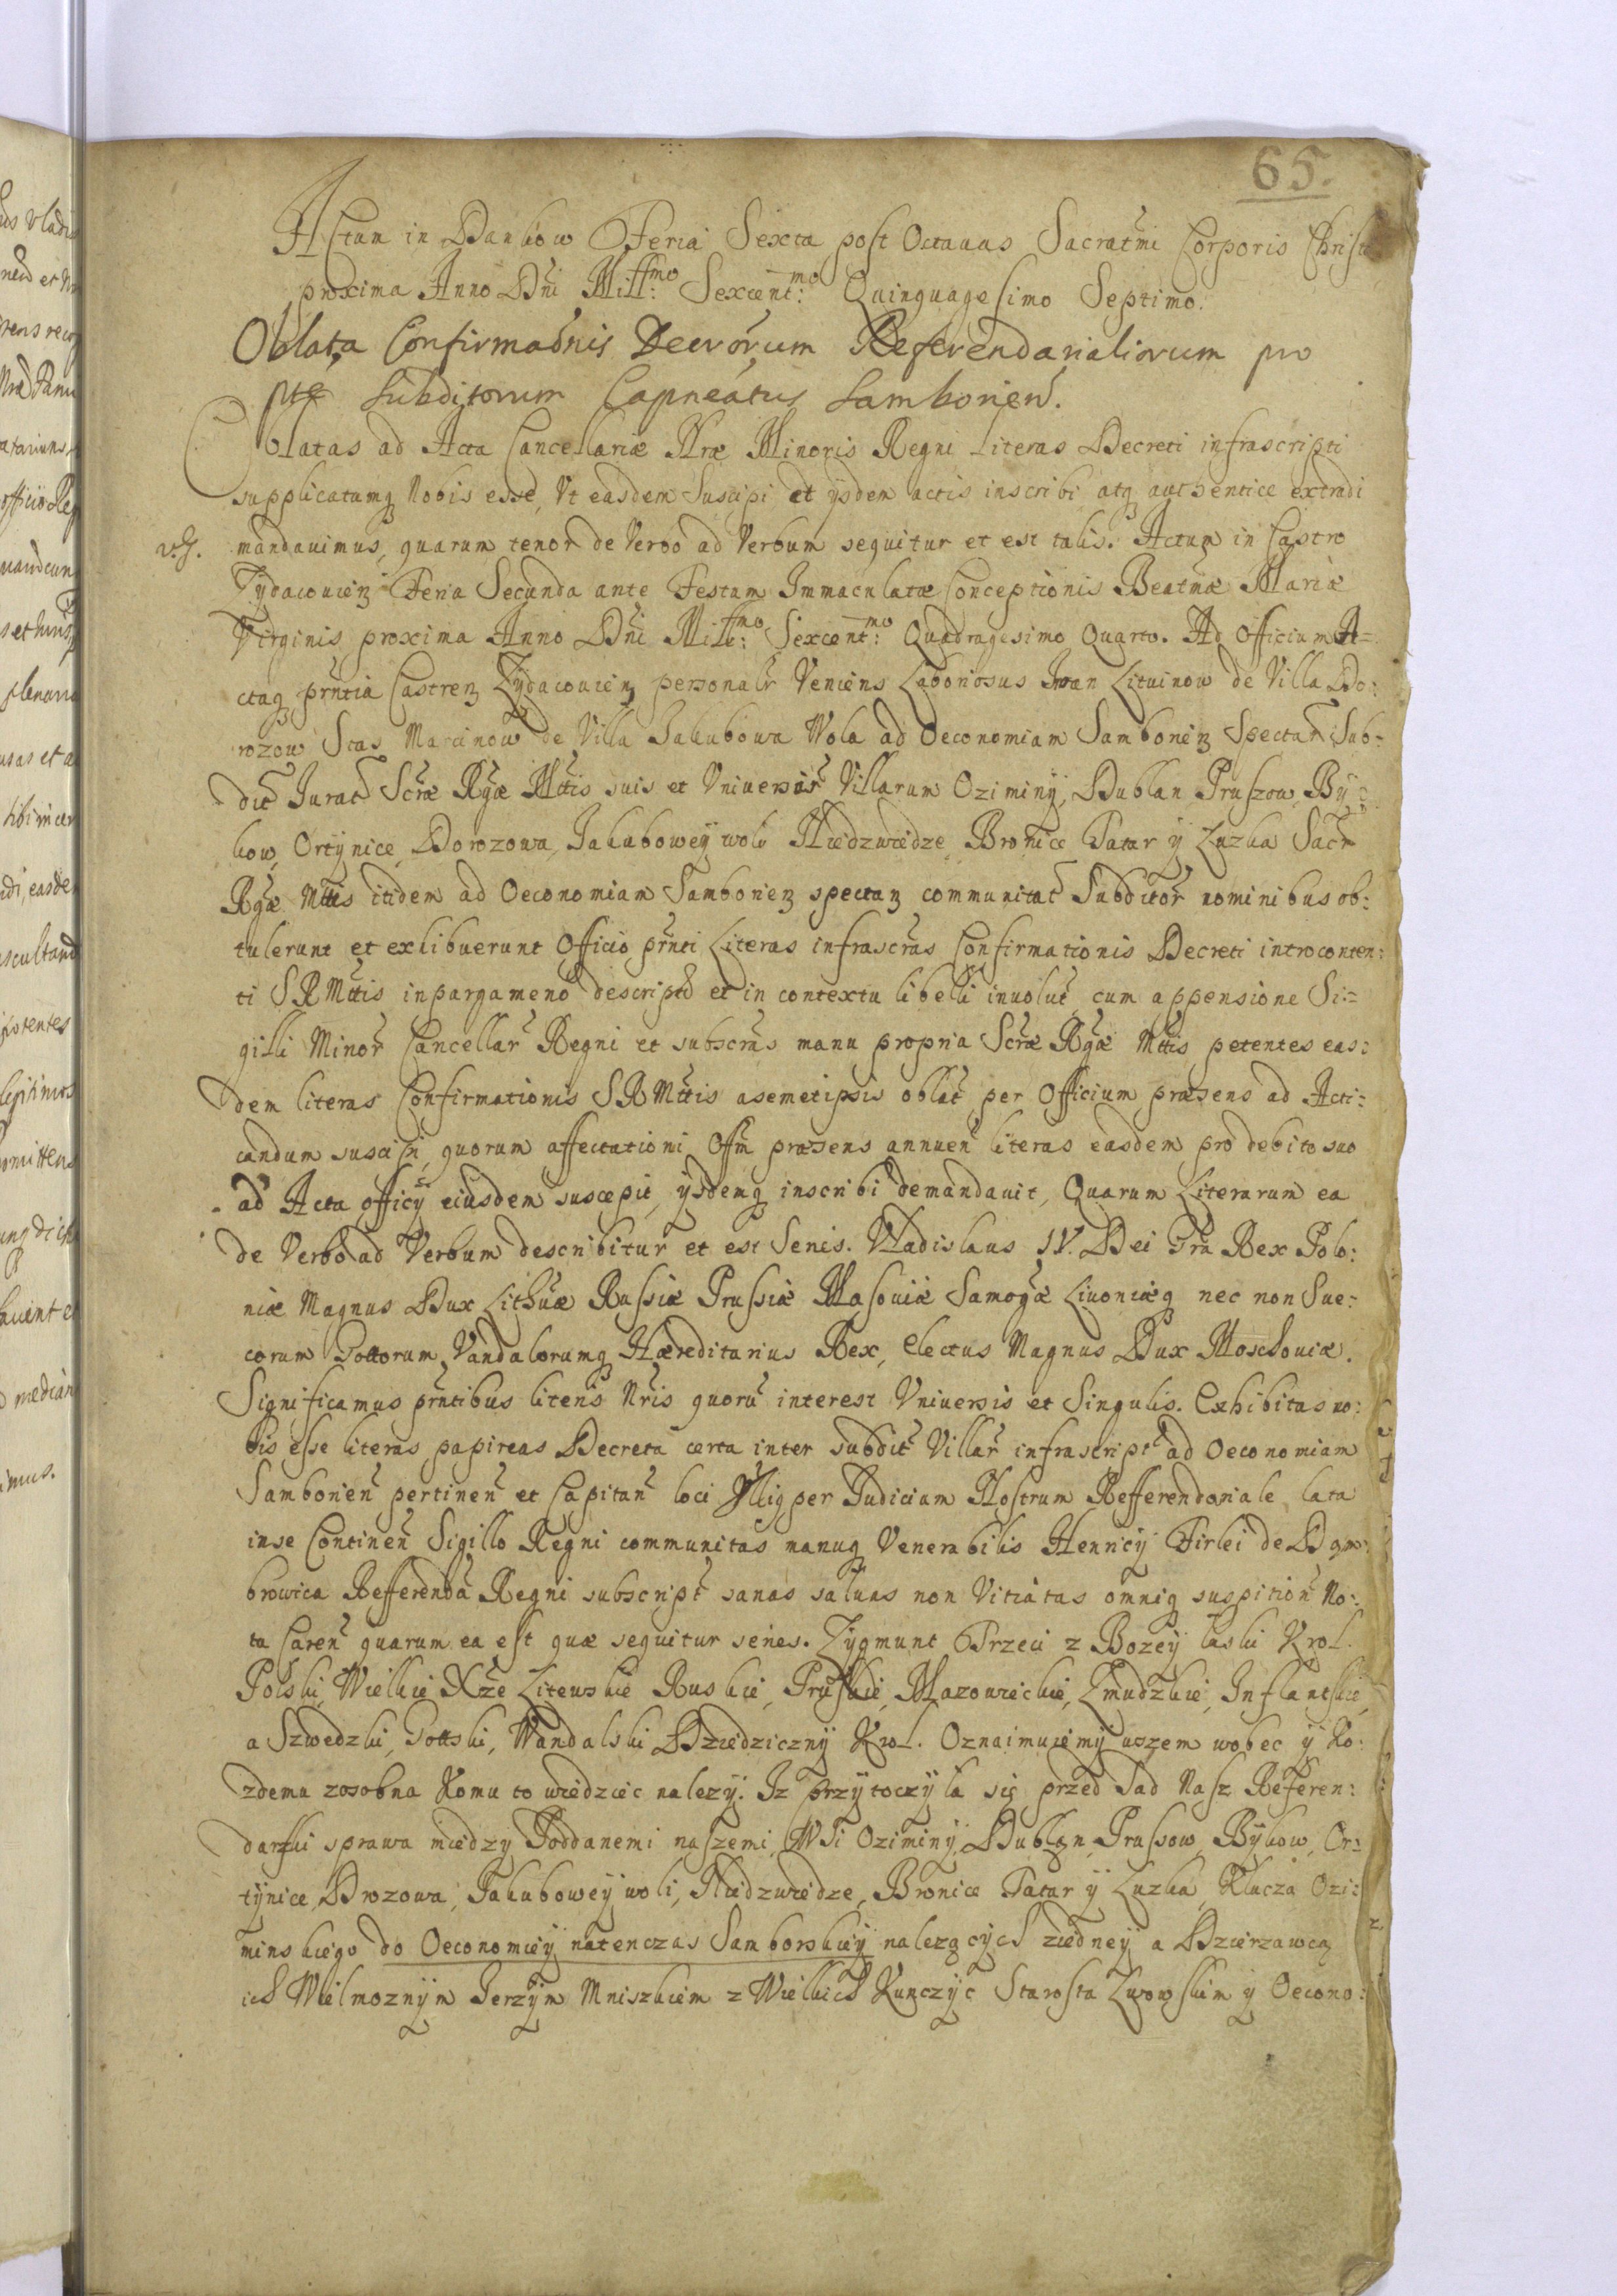 65.
Actum in Dankow Feria Sexta post Octauas Sacratmi Corporis Christi
proxima Anno Dni Mill:mo Sexcent:mo Quinquagesimo Septimo.
Oblata Confirmaonis Decrorum Referendarialiorum pro
pte Subditorum Capneatus Samborien.
Oblatas ad Acta Cancellariæ Nræ Minoris Regni Literas Decreti infrascripti
supplicatumq Nobis esse, Vt easdem Suscipi et ijsdem actis inscribi atq authentice extradi
mandauimus, quarum tenor de Verbo ad Verbum sequitur et est talis. Actum in Castro
Zydacouien Feria Secunda ante Festum Immaculatæ Conceptionis Beatmæ Mariæ
Virginis proxima Anno Dni Mille:mo Sexcent:mo Quadragesimo Quarto. Ad Officium A=
ctaq prntia Castren Zydacouien personalr Veniens Laboriosus Iwan Lituinow de Villa Do:
rozow Stas Marcinow de Villa Jakubowa Wola ad Oeconomiam Samborien Spectan Sub:
dit Jurat Scræ Rgæ Mttis suis et Vniuersor Villarum Oziminy, Dublan Pruszow, By:
kow, Ortynice, Dorozowa, Jakubowey woli Niedzwiedze, Bronice Tatar y Luzka Sacr
Rgæ Mttis itidem ad Oeconomiam Samborien spectan communitat Subditor nominibus ob:
tulerunt et exhibuerunt Officio prnti Literas infrascras Confirmationis Decreti introconten:
ti SRMttis in pargameno descripto et in contextu libelli inuolut, cum appensione Si:
gilli Minor Cancellar Regni et subscras manu propria Scræ Rgæ Mttis petentes eas:
dem literas Confirmationis SRMttis a semetipsis oblat per Officium præsens ad Acti:
candum suscipi, quorum affectationi Offm præsens annuen literas easdem pro debito suo
ad Acta officij eiusdem suscepit, ijsdemq inscribi demandauit, Quarum Literarum ea
de Verbo ad Verbum describitur et est Series. Vladislaus IV. Dei Gra Rex Polo:
niæ Magnus Dux Lithuæ Russiæ Prussiæ Masouiæ Samogæ Liuoniæq nec non Sue:
corum Gottorum Vandalorumq Hæreditarius Rex, electus Magnus Dux Moschouiæ.
Significamus prntibus literis Nris quoru interest Vniuersis et Singulis. Exhibitas no:
bis esse literas papireas Decreta certa inter subdit Villar infrascript ad Oeconomiam
Samborien pertinen et Capitan loci Illiq per Judicium Nostrum Refferendariale lata
in se Continen Sigillo Regni communitas manuq Venerabilis Henricij Firlei de Dąm:
browica Refferenda Regni subscript sanas saluas non Vitiatas omniq suspition No:
ta Caren quarum ea est quæ sequitur series. Zygmunt Trzeci z Bozey łaski Krol
Polski, Wielkie Xze Litewskie Ruskie, Pruskie, Mazowieckie, Zmudzkie, Inflantskie,
a Szwedzki, Gottski, Wandalski Dziedziczny Krol. Oznaimuiemy wszem wobec y Ko:
zdemu zosobna Komu to wiedziec nalezy. Iz przytoczyła się przed Sad Nasz Referen:
darski sprawa miedzy Poddanemi naszemi, Wsi Oziminy, Dublan, Prussow, Bykow, Or:
tynice, Drozowa, Jakubowey woli, Niedzwiedze, Bronice Tatar y Luzka, Klucza Ozi:
minskiego do Oeconomiey natenczas Samborskiey nalezących ziedney a Dzierzawcą
ich Wielmoznym Jerzym Mniszkiem z Wielkich Kunczyc Starosta Lwowskim y Oecono: